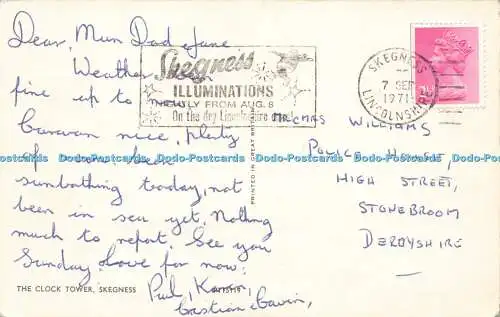 Dear, Mum Dad & Jane
Weather
fine up to now
Caravan nice, plenty
of room, been
sunbathing today, not
been in sea yet. Nothing
much to report. See you
Sunday. Love for now:
Paul, Karen,
Gavin,
THE CLOCK TOWER, SKEGNESS
Skegness
ILLUMINATIONS
NIGHTLY FROM AUG. 8
On the dry Lincolnshire
SKEGNESS
7 SEP
1971
LINCOLNSHIRE
PRINTED IN GREAT
MR & MRS WILLIAMS
POLICE HOUSE,
HIGH STREET,
STONEBROOM
DERBYSHIRE
Dodo-Postcards Dodo-Postcards Dodo-Postcards Dodo-Postcards Dodo-Postcards Dodo-Postcards